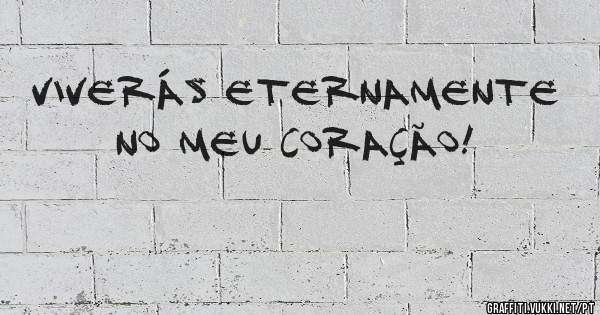 VIVERÁS ETERNAMENTE
NO MEU CORAÇÃO!
GRAFFITI.VUKKI.NET/PT